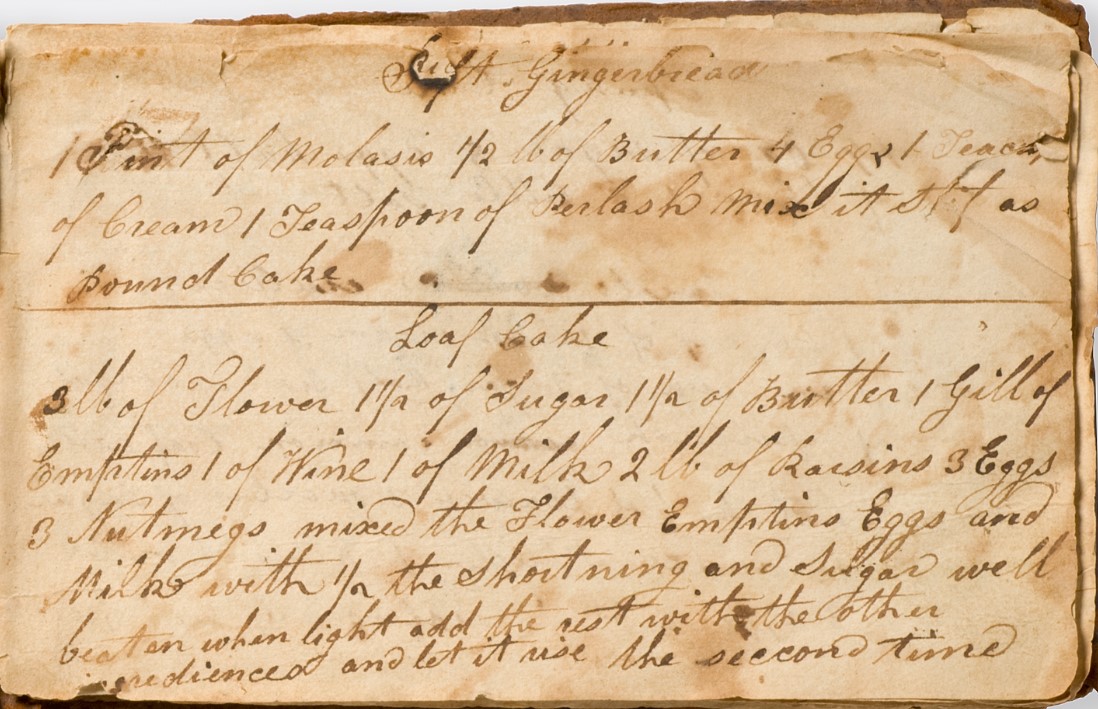 Soft Gingerbread
1 Pint of Molasis 1/2 lb of Butter 4 Eggs 1 Teacup
of Cream 1 Teaspoon of Perlash mix it Stif as
pound Cake
Loaf Cake
3 lb of Flower 1 1/2 of Sugar 1 1/2 of Butter 1 Gill of
Emptins 1 of Wine 1 of Milk 2 lb of Raisins 3 Eggs
3 Nutmegs mixed the Flower Emptins Eggs and
Milk with 1/2 the Shortning and Sugar well
beaten when light add the rest with the other
and let it rise the seccond time